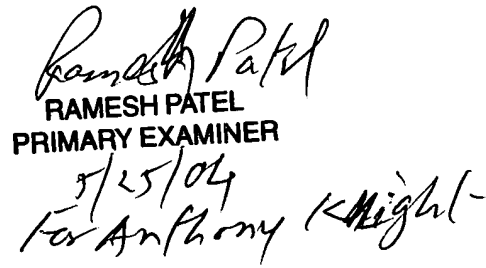 Ramesh Patel
RAMESH PATEL
PRIMARY EXAMINER
5/25/04
For Anthony Knight